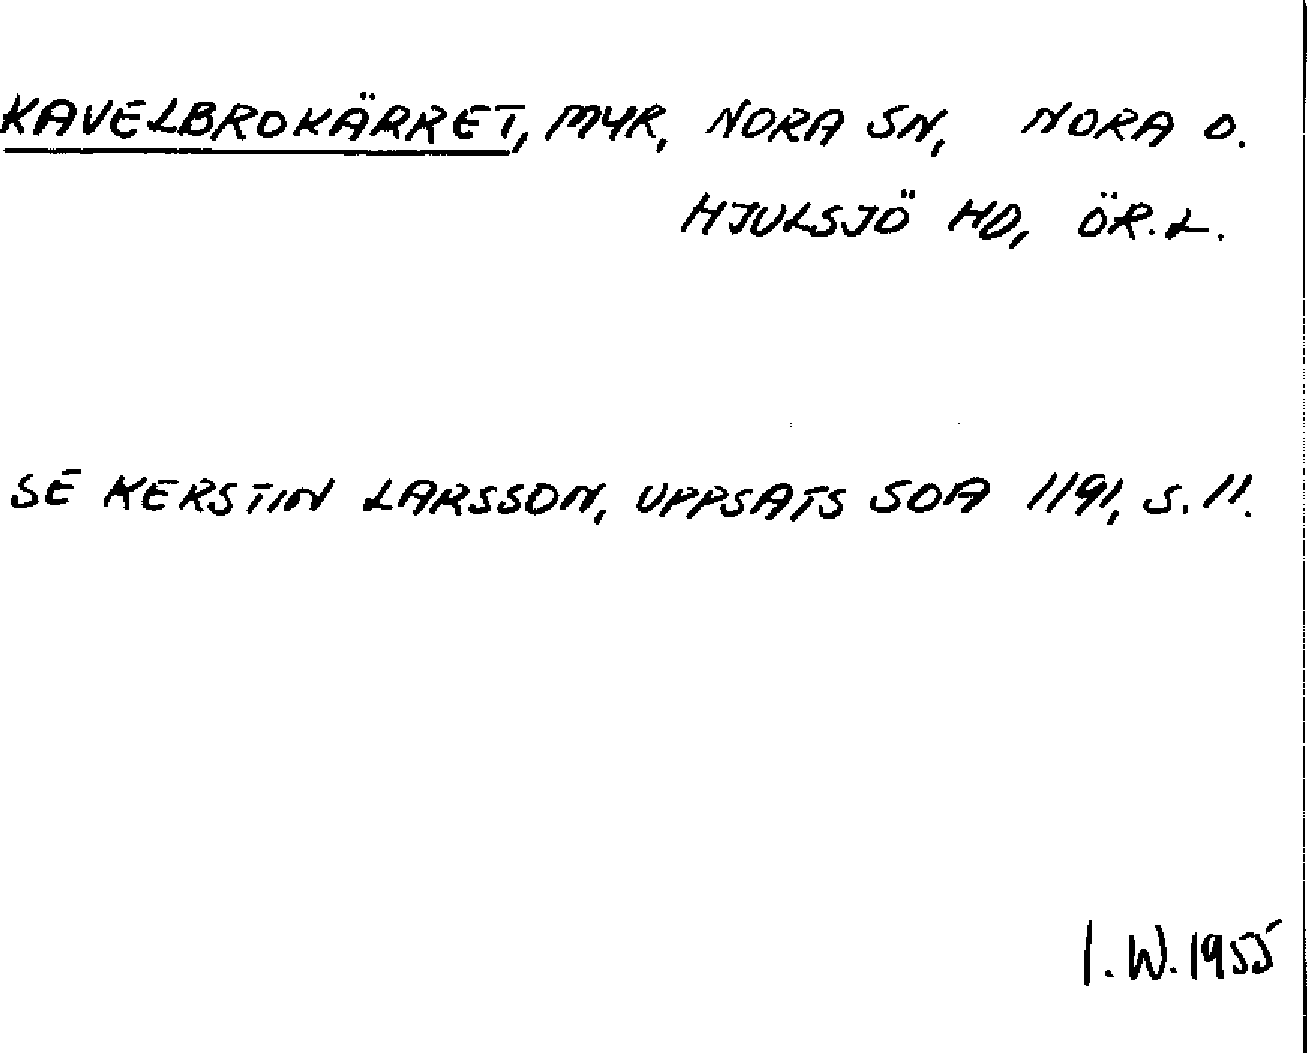 KAVELBROKÄRRET, MYR, NORA SN, NORA O.
HJULSJÖ HD, ÖR.L.
SE KERSTIN LARSSON, UPPSATS SOA 1191, S. 11.
I. W. 1955